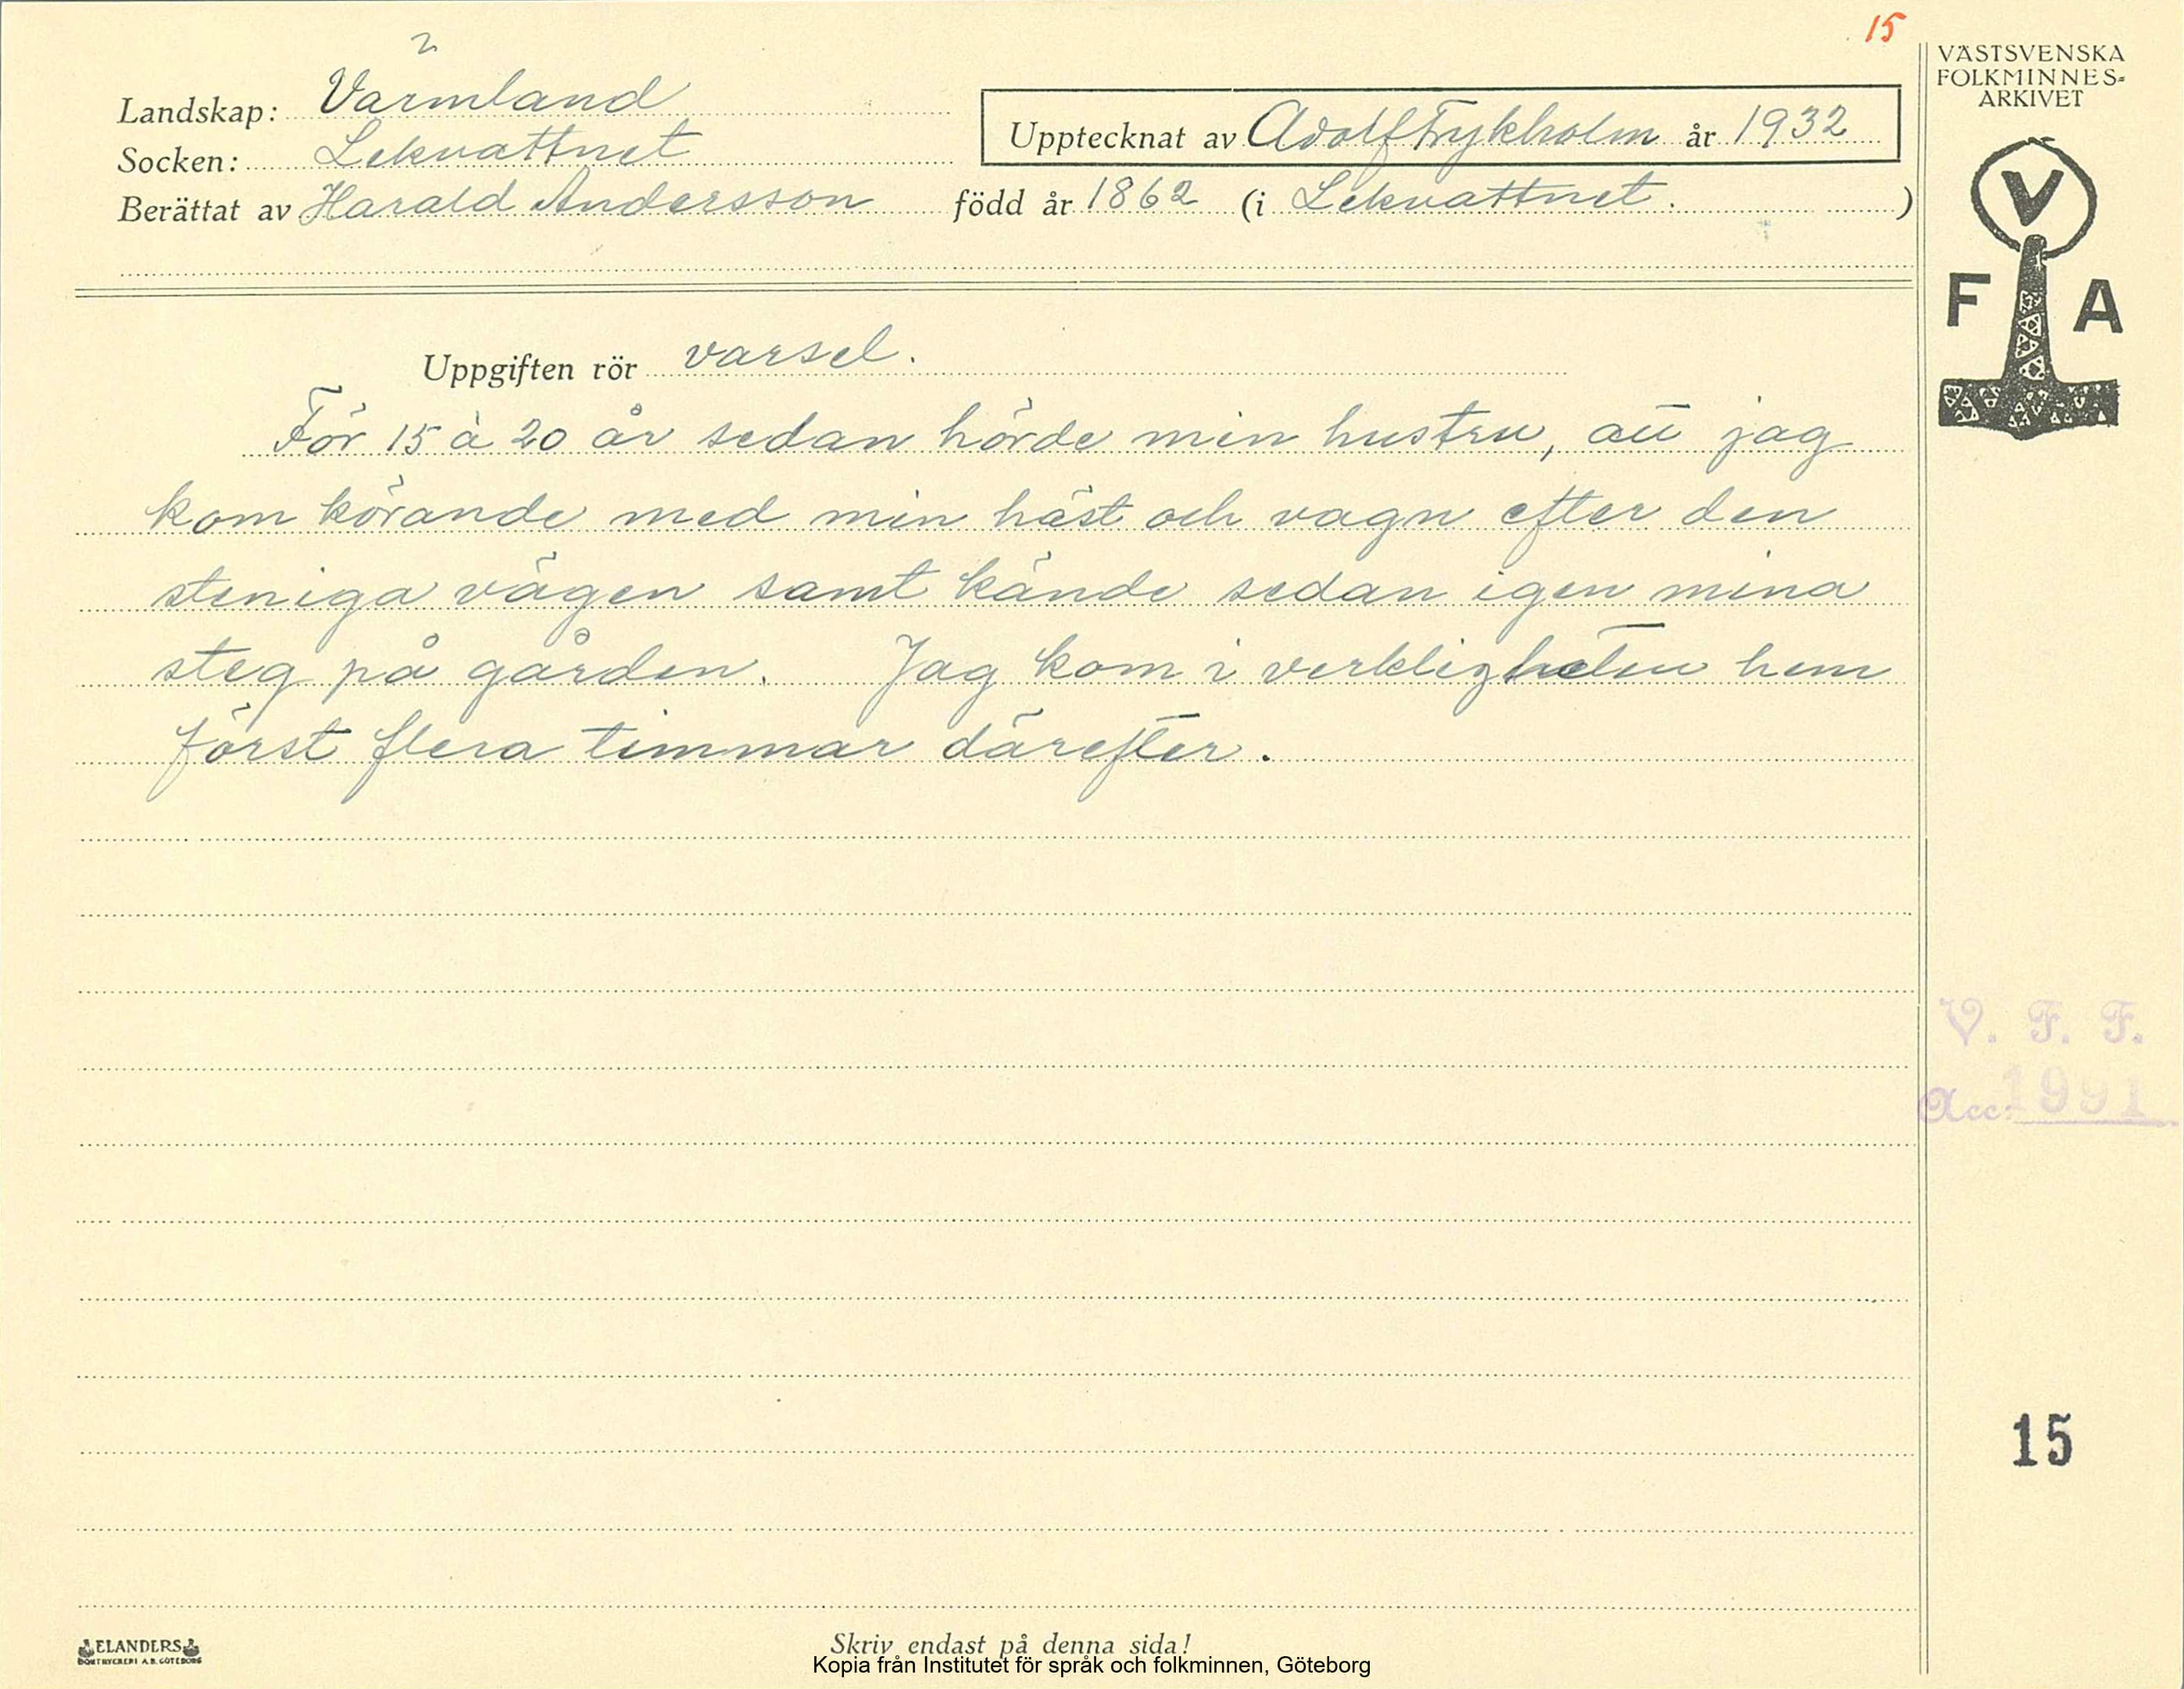 15
Landskap: Värmland
Socken: Lekvattnet
Upptecknat av Adolf Frykholm år 1932
Berättat av Harald Andersson född år 1862 (i Lekvattnet. )
VÄSTSVENSKA
FOLKMINNES-
ARKIVET
V
F A
Uppgiften rör varsel.
För 15 à 20 år sedan hörde min hustru, att jag
kom körande med min häst och vagn efter den
steniga vägen samt kände sedan igen mina
steg på gården. Jag kom i verkligheten hem
först flera timmar därefter.
V. F. F.
Acc. 1991
15
ELANDERS
BOKTRYCKERI A.B. GÖTEBORG
Skriv endast på denna sida!
Kopia från Institutet för språk och folkminnen, Göteborg